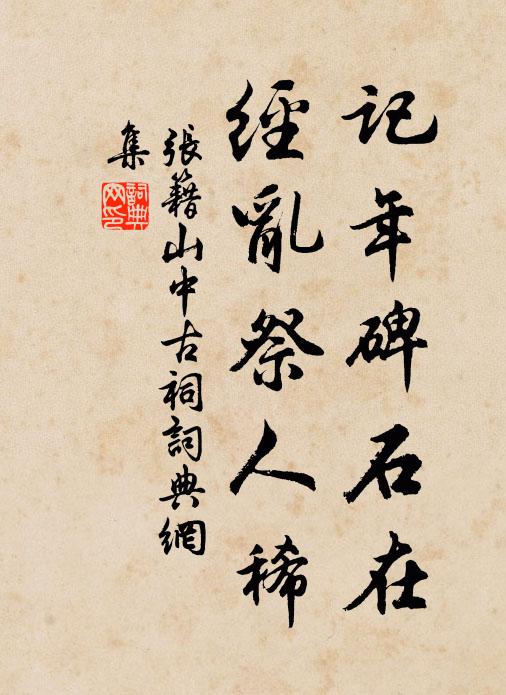 記年碑石在
經亂祭人稀
張籍山中古祠詞典網
集
詞典
網印